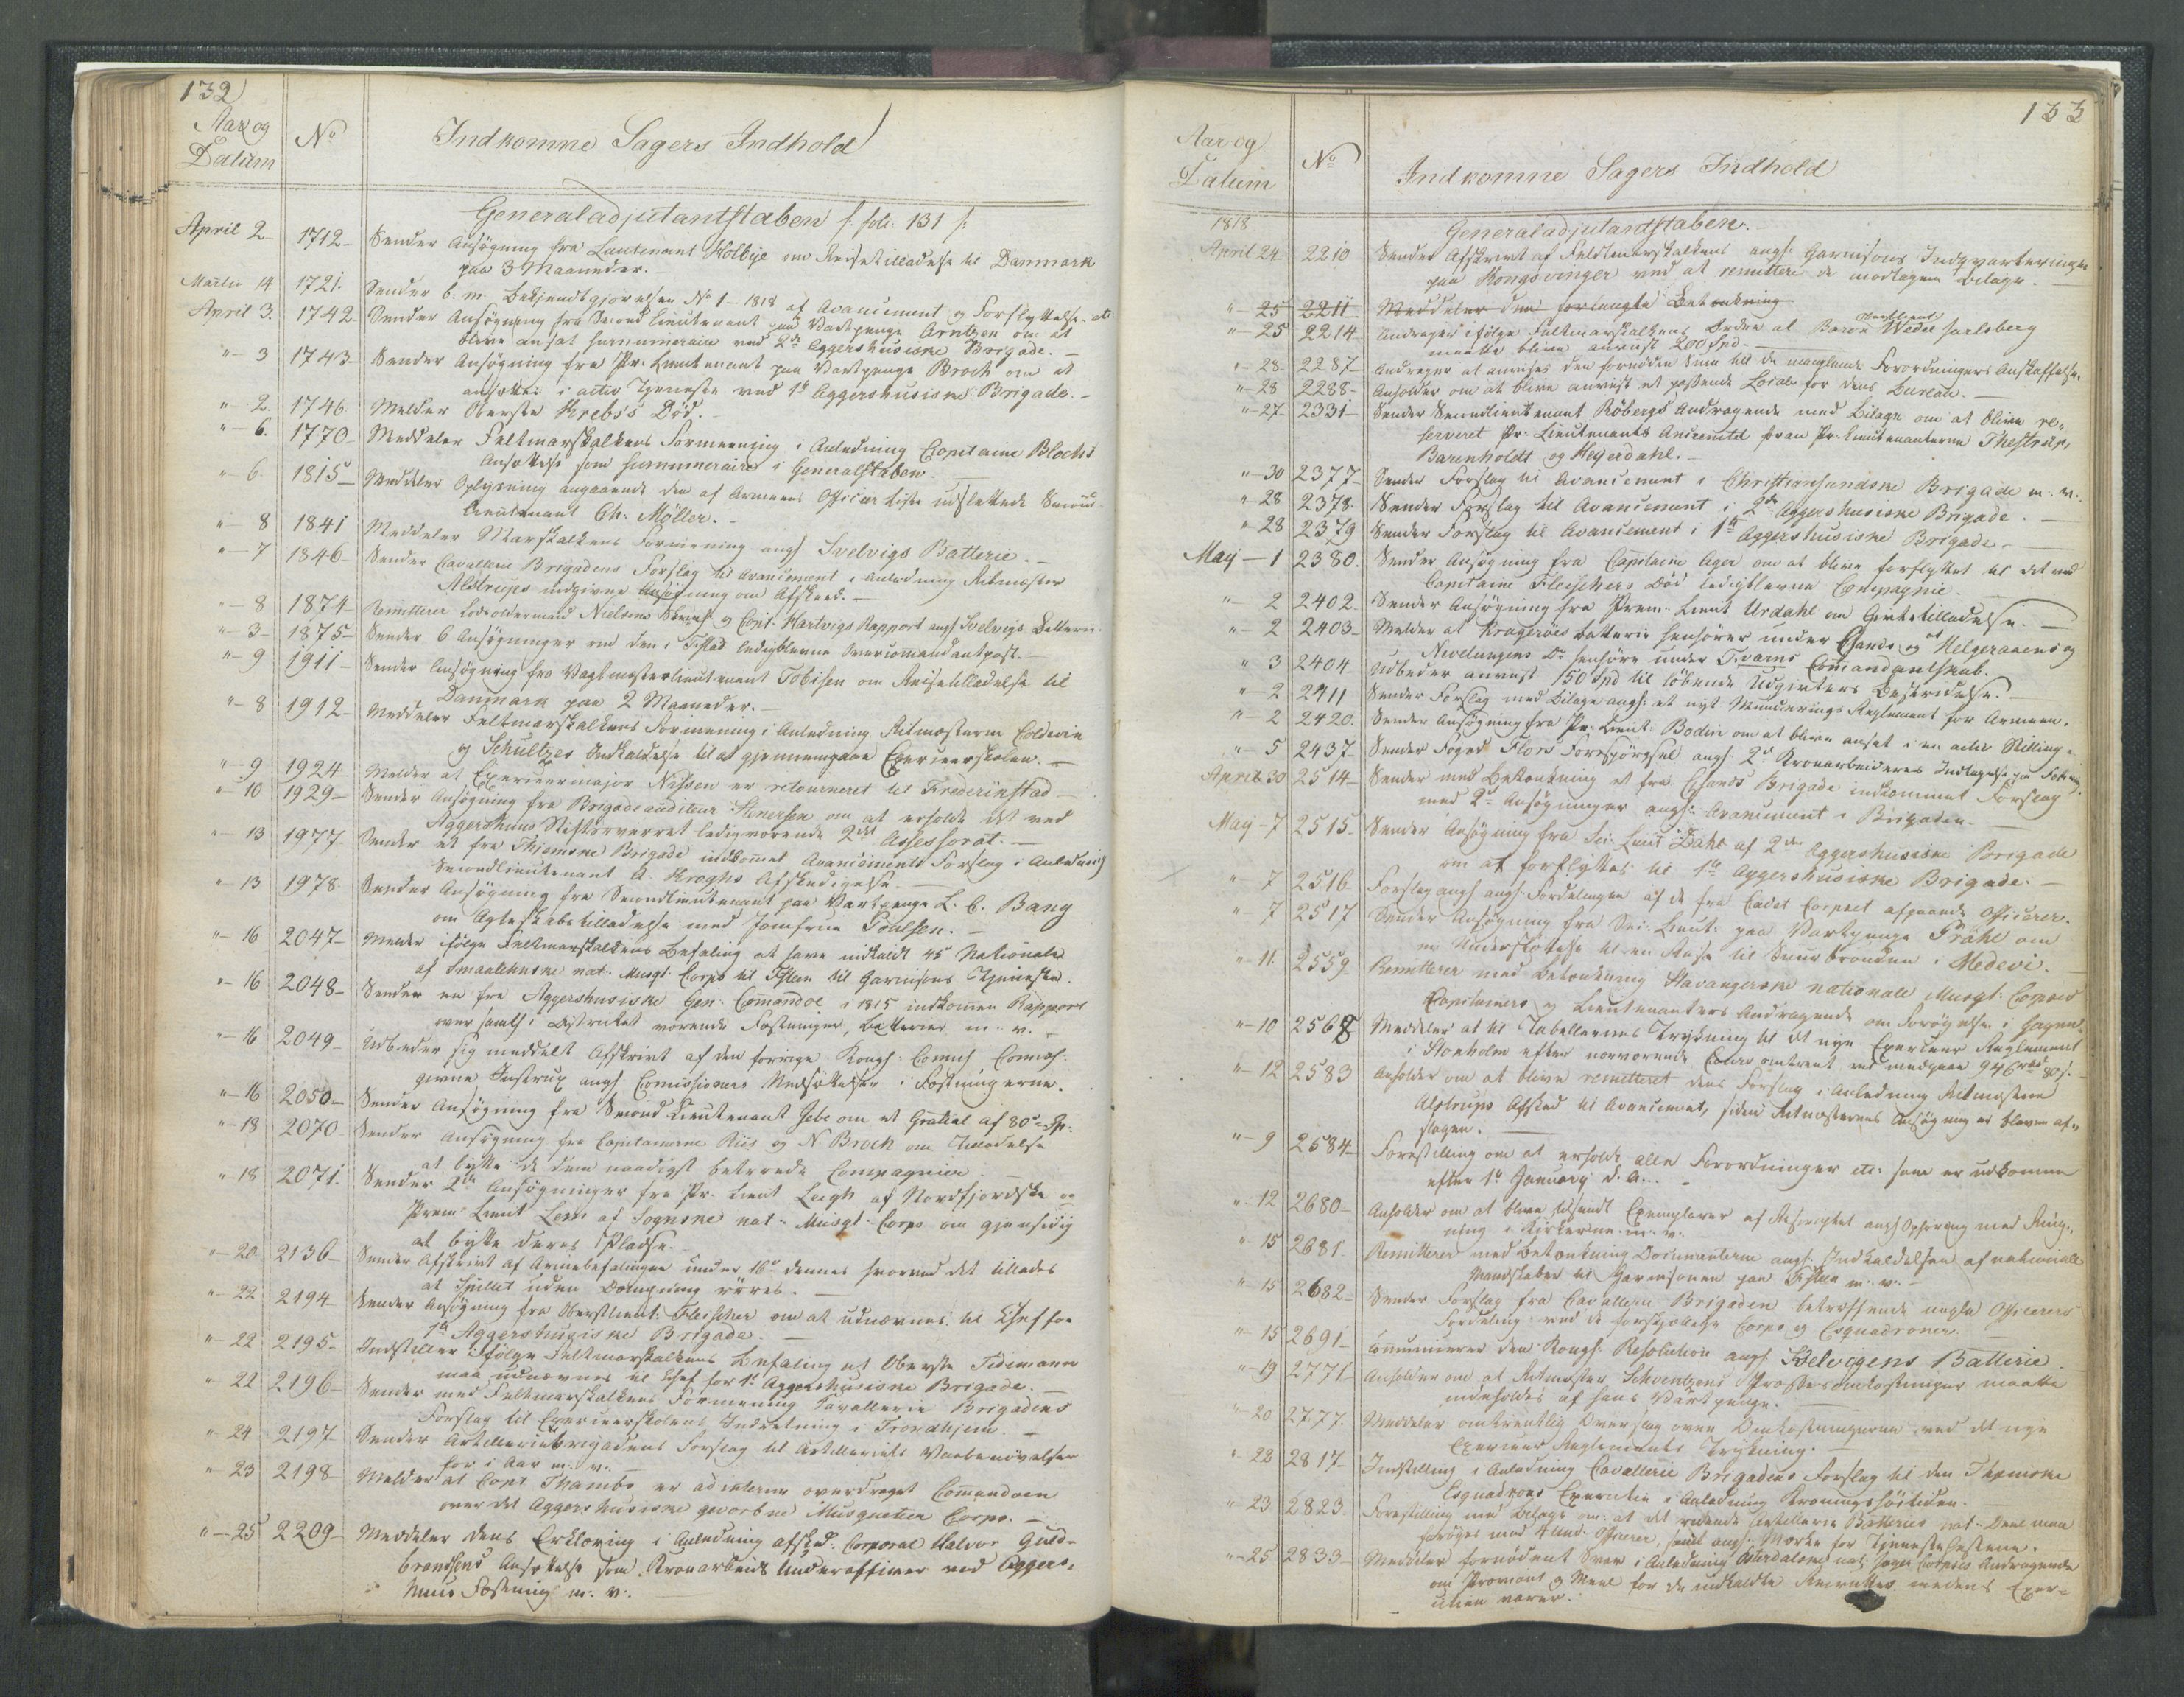 132
Aar og
Datum
No
Indkomne Sagers Indhold
Generaladjutantstaben f. fol: 131 f.
April 2 1712 Sender Ansøgning fra Lieutenant Holbye om Reisetilladelse til Danmark
paa 3 Maaneder.
Martii 14 1721. Sender b. m. Bekjendtgjørelsen No 1-1818 af Avancement og Forflyttelse
April 3. 1742 Sender Ansøgning fra Second Lieutenant paa Vartpenge Arntzen om at
blive ansat surnumeraire ved 2de Aggershusiske Brigade.
" 3 1743 Sender Ansøgning fra Pr. Lieutenant paa Vartpenge Broch om at
ansættes i activ Tjeneste ved 1te Aggershusiske Brigade.
" 2. 1746 Melder Oberste Krebs's Død.
" 6. 1770 Meddeler Feltmarskalkens Formeening i Anledning Capitaine Blochs
Ansættelse som surnumeraire i Generalstaben
" 6 1815 Meddeler Oplysning angaaende den af Armeens Officier Liste udslettede Second
Lieutenant Ch. Møller.
" 8 1841 Meddeler Marskalkens Formening angl Svelvigs Batterie.
" 7 1846 Sender Cavallerie Brigadens Forslag til Avancement i Anledning Ritmester
Alstrups indgivne Ansøgning om Afskeed.
" 8 1874 Remitterer Lodsoldermand Nielsens og Capt. Hartvigs Rapport angl Svelvigs Batterie
" 3 1875 Sender 6 Ansøgninger om den i Fstad ledigblevne Overcommandantpost.
" 9 1911 Sender Ansøgning fra Vagtmesterlieutenant Tobisen om Reisetilladelse til
Danmark paa 2 Maaneder.
" 8 1912 Meddeler Feltmarskalkens Formening i Anledning Ritmesterne Coldevin
og Schultzes Indkaldelse til at gjennemgaae Exerceerskolen.
" 9 1924 Melder at Exerceermajor Nissen er retourneret til Frederikstad
" 10 1929 Sender Ansøgning fra Brigadeauditeur Stenersen om at erholde det ved
Aggershuus Stiftsoverret ledigværende 2det Assessorat.
" 13 1977 Sender et fra Thjemske Brigade indkommet Avancements Forslag i Anledning
Secondlieutenant A. Kroghs Afskedigelse.
" 13 1978 Sender Ansøgning fra Secondlieutenant paa Vartpenge L. C. Bang
om Ægteskabstilladelse med Jomfrue Pohlsen.
" 16 2047 Melder ifølge Feltmarskalkens Befaling at have indkaldt 45 Nationale
af Smaalehnske nat: Musqt: Corps til Fsteen til Garnisons Tjeneste.
" 16 2048 Sender en fra Aggershusiske Gen: Commandoe i 1815 indkommen Rapport
over samtl: i Districtet værende Fæstninger, Batterier m. v.
" 16 2049 Udbeder sig meddelt Afskrivt af den forrige Kongl: Commis
givne Instrux angl Commissionens Nedsættelse i Fæstningerne.
" 16 2050 Sender Ansøgning fra Second Lieutenant Jebe om et Gratial af 80 Sp:
" 18 2070 Sender Ansøgning fra Capitainerne Riis og N. Broch om Tilladelse
at bytte de dem naadigst betroede Compagnier.
" 18 2071. Sender 2de Ansøgninger fra Pr. Lieut Leigh af Nordfjordske og
Prem: Lieut Lem af Sognske nat: Musqt: Corps om gjensidig
at bytte deres Pladse.
" 20 2136 Sender Afskrivt af Armebefalingen under 16de dennes hvorved det tillades
at Spillet uden Dæmpning røres.
" 22 2194 Sender Ansøgning fra Oberstlieut: Fleischer om at udnævnes til Chef for
1te Aggershusiske Brigade.
" 22 2195 Indstiller ifølge Feltmarskalkens Befaling at Oberste Tidemann
maa udnævnes til Chef for 1te Aggershusiske Brigade.
" 22 2196 Sender med Feltmarskalkens Formening Cavallerie Brigadens
Forslag til Exerceerskolens Indretning i Trondhjem.
" 24 2197 Sender Artilleriebrigadens Forslag til Artilleriets Vaabenøvelser
for i Aar m. v.
" 23 2198 Melder at Capt Thambs er ad interim overdraget Commandoen
over det Aggershusiske geworbne Musqueteer Corps.
" 25 2209 Meddeler dens Erklæring i Anledning afsked: Corporal Halvor Guld-
brandsens Ansættelse som Kronarbeids Underofficeer ved Aggers-
huus Fæstning m. v.
133
Aar og
Datum
No
Indkomne Sagers Indhold
Generaladjutantstaben.
1818
April 24 2210 Sender Afskrivt af Feldtmarskalkens angl: Garnisons Indqvarteringen
paa Kongsvinger ved at remittere de modtagne Bilage.
" 25 2211 Meddeler den forlangte Betænkning
" 25 2214 Andrager ifølge Feltmarskalkens Ordre at Baron Oberstlieut: Wedel Jarlsberg
maatte blive anvist 200 Spd.
" 28 2287 Andrager at anvises den fornødne Sum til de manglende Forordningers Anskaffelse.
" 28 2288 Anholder om at blive anvist et passende Locale for dens Bureau.
" 27 2331 Sender Secondlieutenant Röbergs Andragende med Bilage om at blive re-
serveret Pr. Lieutenants Anciennitet foran Pr. Lieutenanterne Thestrup,
Barenholdt og Heyerdahl.
" 30 2377 Sender Forslag til Avancement i Christiansandske Brigade m. v.
" 28 2378 Sender Forslag til Avancement i 2de Aggershusiske Brigade.
" 28 2379 Sender Forslag til Avancement i 1te Aggershusiske Brigade.
Maij 1 2380. Sender Ansøgning fra Capitaine Ager om at blive forflyttet til det ved
Capitaine Fleischers Død ledigblevne Compagnie.
" 2 2402 Sender Ansøgning fra Prem: Lieut Urdahl om Giftetilladelse.
" 2 2403 Melder at Kragerøes Batterie henhører under Chsands og at Helgeraaens og
Nevelungens Do henhøre under Fværns Commandantskab.
" 3 2404 Udbeder anvist 150 Spd til løbende Udgivters Bestridelse.
" 2 2411 Sender Forslag med Bilage angl: et nyt Munderings Reglement for Armeen.
" 2 2420. Sender Ansøgning fra Pr: Lieut: Bodin om at blive ansat i en activ Stilling.
" 5 2437 Sender Foged Flors Forespørgsel angl: 2de Kronarbeideres Indtagelse paa
April 30 2514 Sender med Betænkning et fra Chsands Brigade indkommet Forslag
med 2de Ansøgninger angl: Avancement i Brigaden.
Maij 7 2515 Sender Ansøgning fra Sec: Lieut Dahl af 2den Aggershusiske Brigade
om at forflyttes til 1te Aggershusiske Brigade.
" 7 2516 Forslag angl angl: Fordelingen af de fra Cadet Corpset afgaaende Officerer.
" 7 2517 Sender Ansøgning fra Sec: Lieut: paa Vartpenge Pråhl om
en Understøttelse til en Reise til Suurbrønden i Medevi.
" 11 2559 Remitterer med Betænkning Stavangerske nationale Musqt: Corpses
Capitainers og Lieutenanters Andragende om Forøgelse i Gagen
" 10 2568 Meddeler at til Tabellernes Trykning til det nye Exerceer Reglement
i Stockholm efter nærværende Cours omtrent vil medgaae 946 rbd 80 s.
" 12 2583 Anholder om at blive remitteret dens Forslag i Anledning Ritmester
Alstrups Afsked til Avancement, siden Ritmesterens Ansøgning er bleven af-
slagen.
" 9 2584 Forestilling om at erholde alle Forordninger etc: som er udkomne
efter 1te January d. A.
" 12 2680 Anholder om at blive tilsendt Exemplarer af Rescriptet angl Ophøring med Ring-
ning i Kirkerne m. v.
" 15 2681 Remitterer med Betænkning Documenterne angl. Indkaldelsen af nationale
Mandskaber til Garnisonen paa Fsteen m. v.
" 15 2682 Sender Forslag fra Cavallerie Brigaden betræffende nogle Officerers
Fordeling ved de forskjellige Corps og Esquadroner.
" 15 2691 Communicerer den Kongl: Resolution angl Svelvigens Batterie.
" 19 2771 Anholder om at Ritmester Schwentzens Procesomkostninger maatte
indeholdes af hans Vartpenge.
" 20 2777. Meddeler omtrentlig Overslag over Omkostningerne ved det nye
Exerceer Reglements Trykning.
" 22 2817 Indstilling i Anledning Cavallerie Brigadens Forslag til den Thjemske
Esquadrons Exercitie i Anledning Kroningshøitiden.
" 23 2823. Forestilling med Bilage om at det ridende Artillerie Batteries nat: Deel maa
forøges med 4 Und: Officerer, samt angl: Mærke for Tjenestehestene.
" 25 2833 Meddeler fornødent Svar i Anledning Østerdalske nat: Jæger Corpses Andragende
om Proviant og Meel for de indkaldte Recruter medens Exer-
citien varer.